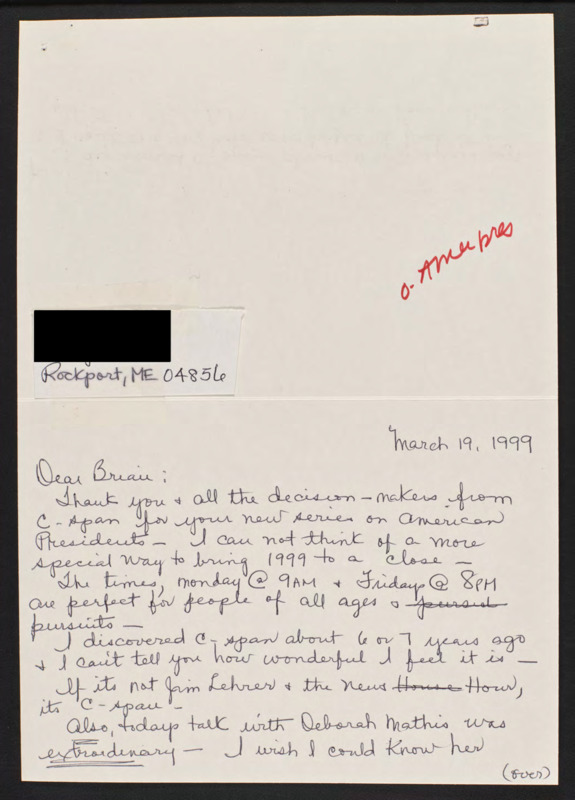 o. Amer pres
Rockport, ME 04856
March 19, 1999
Dear Brian:
Thank you & all the decision-makers from
C-span for your new series on American
Presidents - I can not think of a more
special way to bring 1999 to a close -
The times, monday @ 9AM & Fridays @ 8PM
are perfect for people of all ages & pursuit
pursuits -
I discovered C-span about 6 or 7 years ago
& I can't tell you how wonderful I feel it is -
If its not Jim Lehrer & the News House Hour,
its C-span -
Also, todays talk with Deborah Mathis was
extraordinary - I wish I could know her
(over)